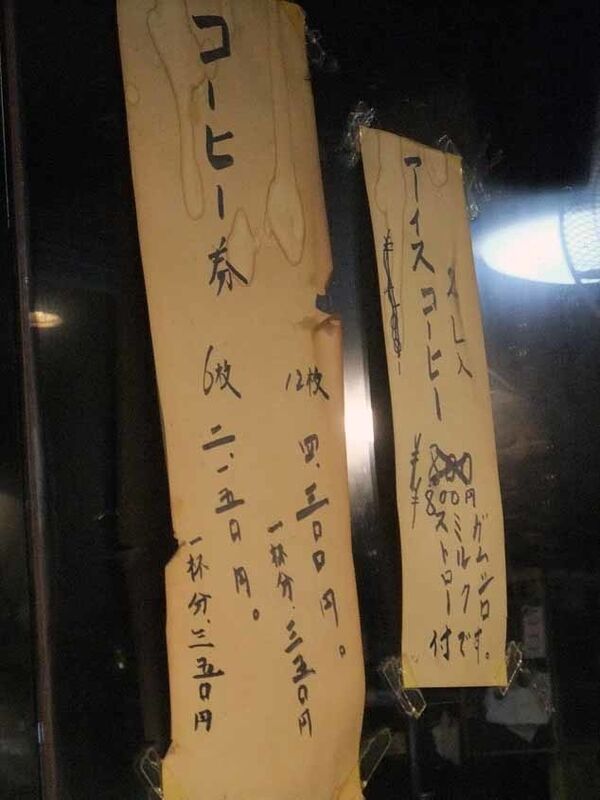 コーヒー券
12枚 四、三〇〇円。
一杯分、三五〇円
6枚 二、一五〇円。
一杯分、三五〇円
アイスコーヒー
2L入
800円
ガムシロ
ミルク
ストロー付です。